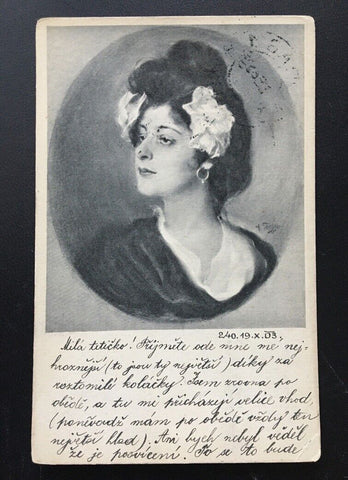 240.19.X.03,
Milá tetičko! Přijměte ode mne me nej-
hroznější (to jsou ty největší) díky za
roztomilé koláčky. Jsem zrovna po
obědě, a tu mi přicházejí velice vhod,
(poněvadž mám po obědě vždy ten
největší hlad). Ani bych nebyl věděl
že je posvícení. To se to bude